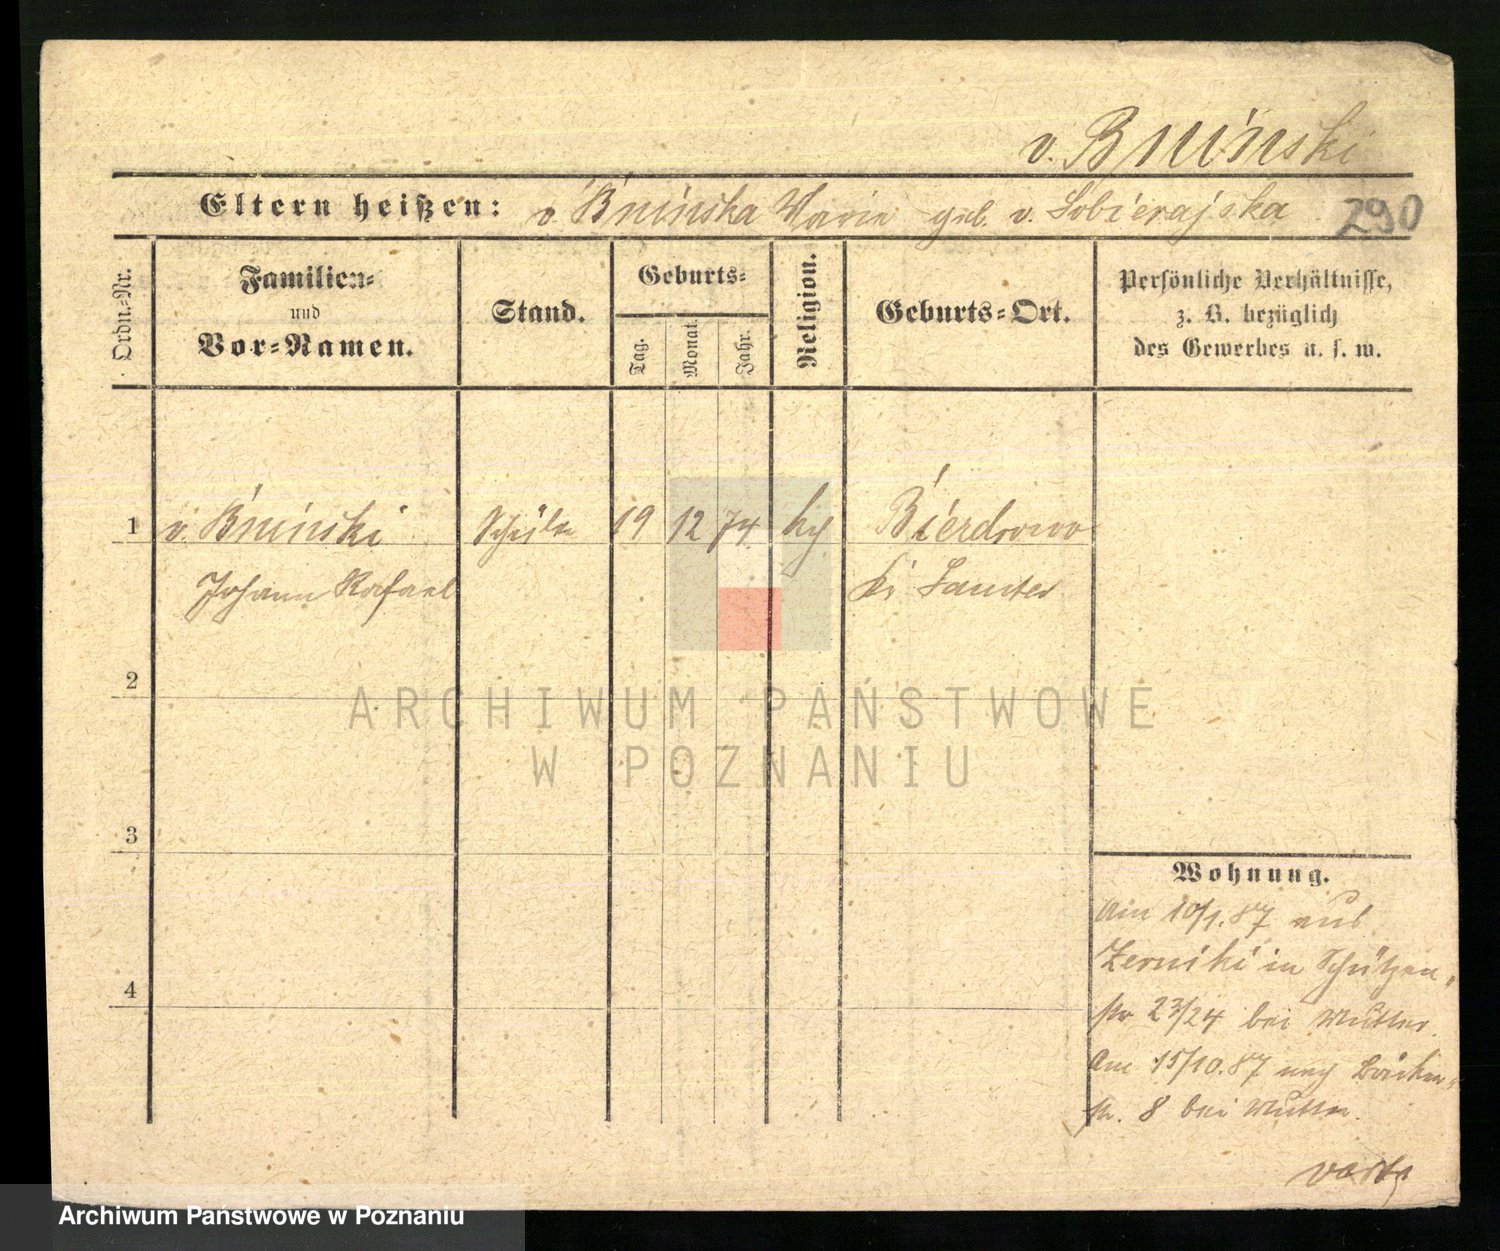 v. Bniński
Eltern heißen: v. Bnińska Marie geb. v. Sobierajska
290
Ordn.-Nr.
Familien-
und
Vor-Namen.
Stand.
Geburts-
Tag.
Monat.
Jahr.
Religion.
Geburts-Ort.
Persönliche Verhältnisse,
z. B. bezüglich
des Gewerbes u. s. w.
1 v. Bniński Schüler 19 12 74 Bierdrowo
Johann Rafael Kr Samter
2
3
4
Wohnung.
Am 10/1. 87 aus
Zerniki in Schützen-
str 23/24 bei Mutter.
Am 15/10. 87 nach Bäcker-
str. 8 bei Mutter.
ARCHIWUM PAŃSTWOWE
W POZNANIU
Archiwum Państwowe w Poznaniu